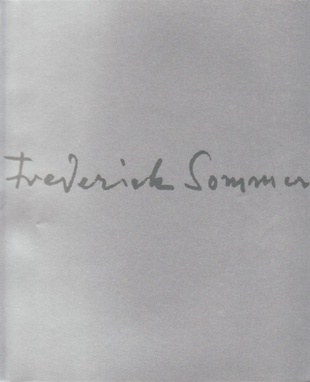 Frederick Sommer